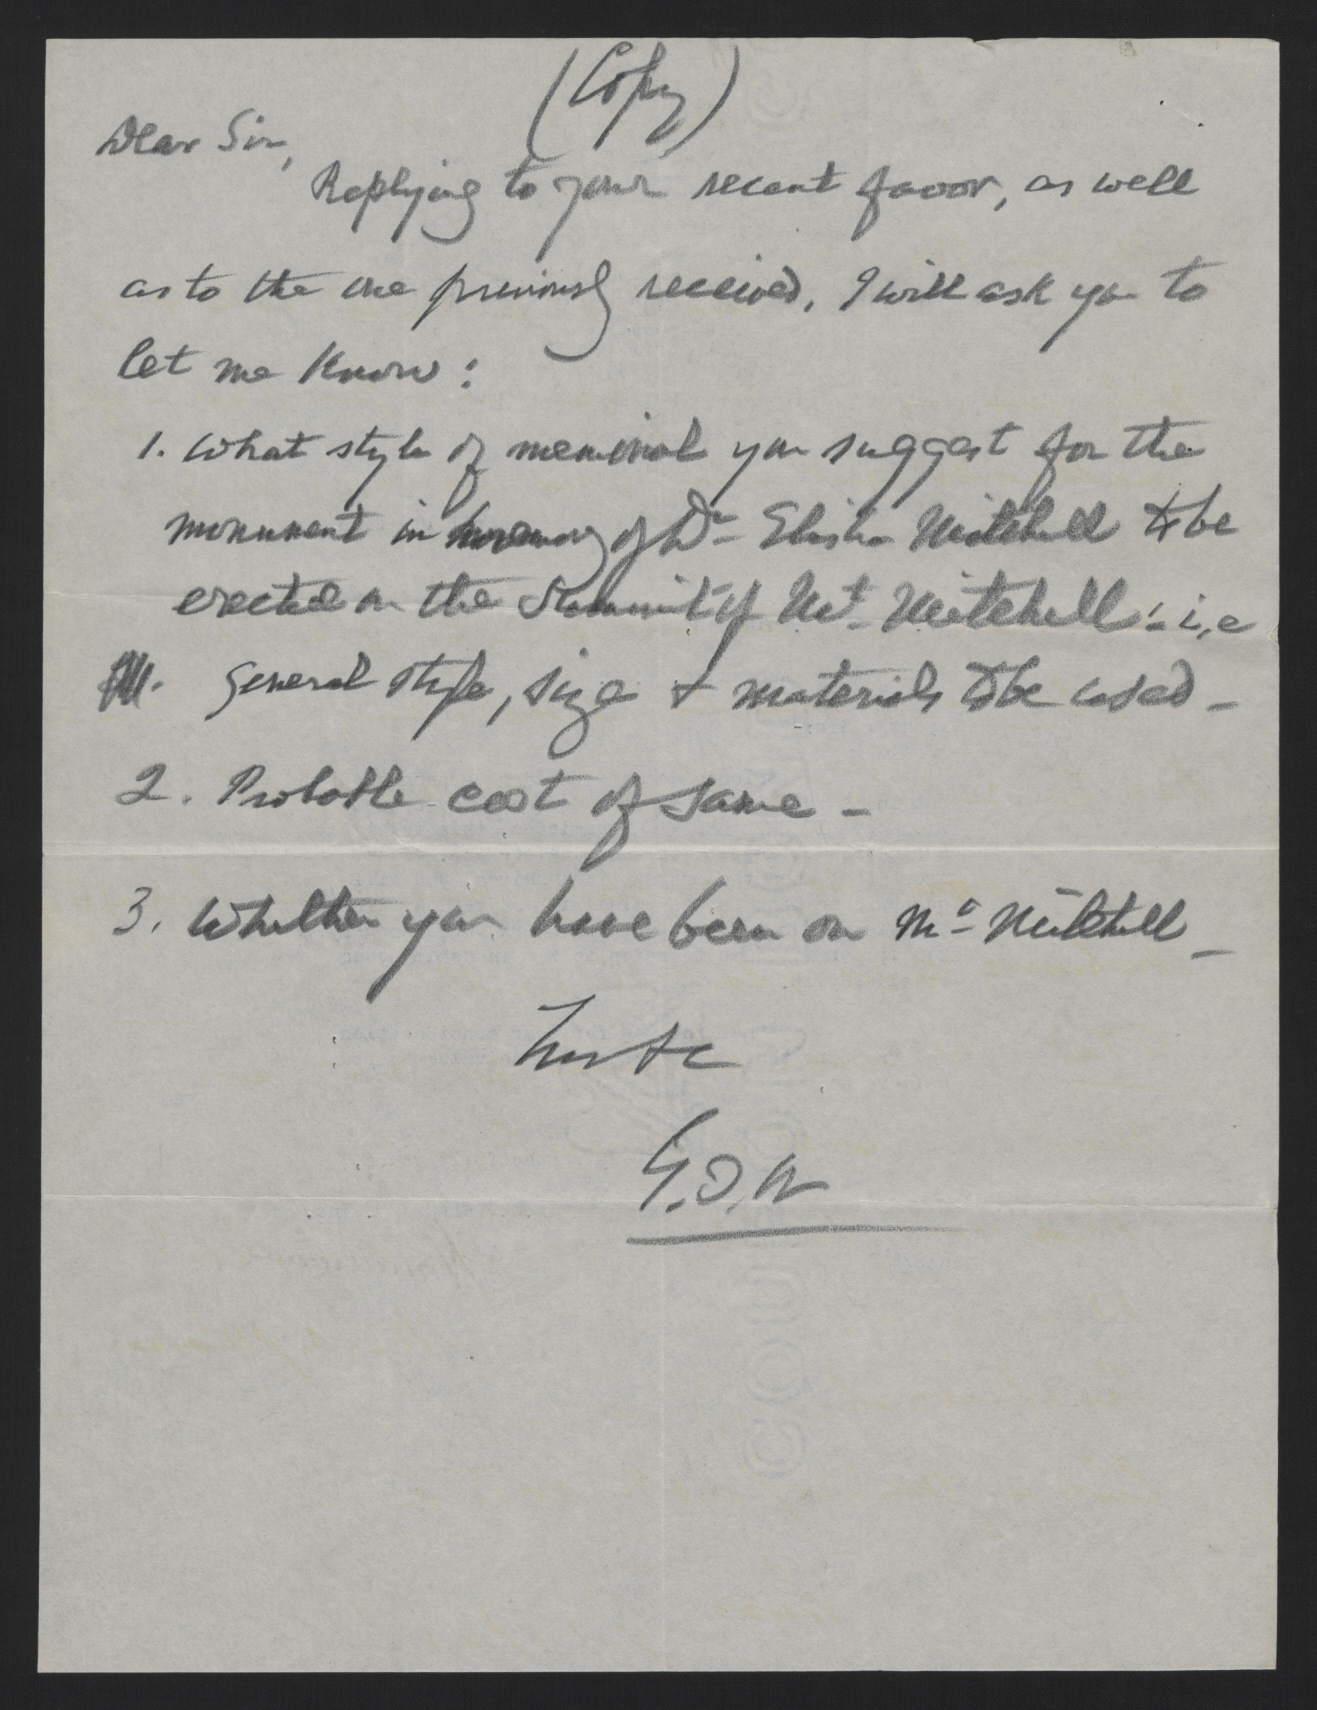 (Copy)
Dear Sir,
Replying to your recent favor, as well
as to the one previously received, I will ask you to
let me know:
1. What style of memorial you suggest for the
monument in memory of Dr- Elisha Mitchell to be
erected on the Summit of Mt- Mitchell :- i,e
General style, size + materials to be used -
2. Probable cost of same -
3. Whether you have been on Mt- Mitchell -
&c